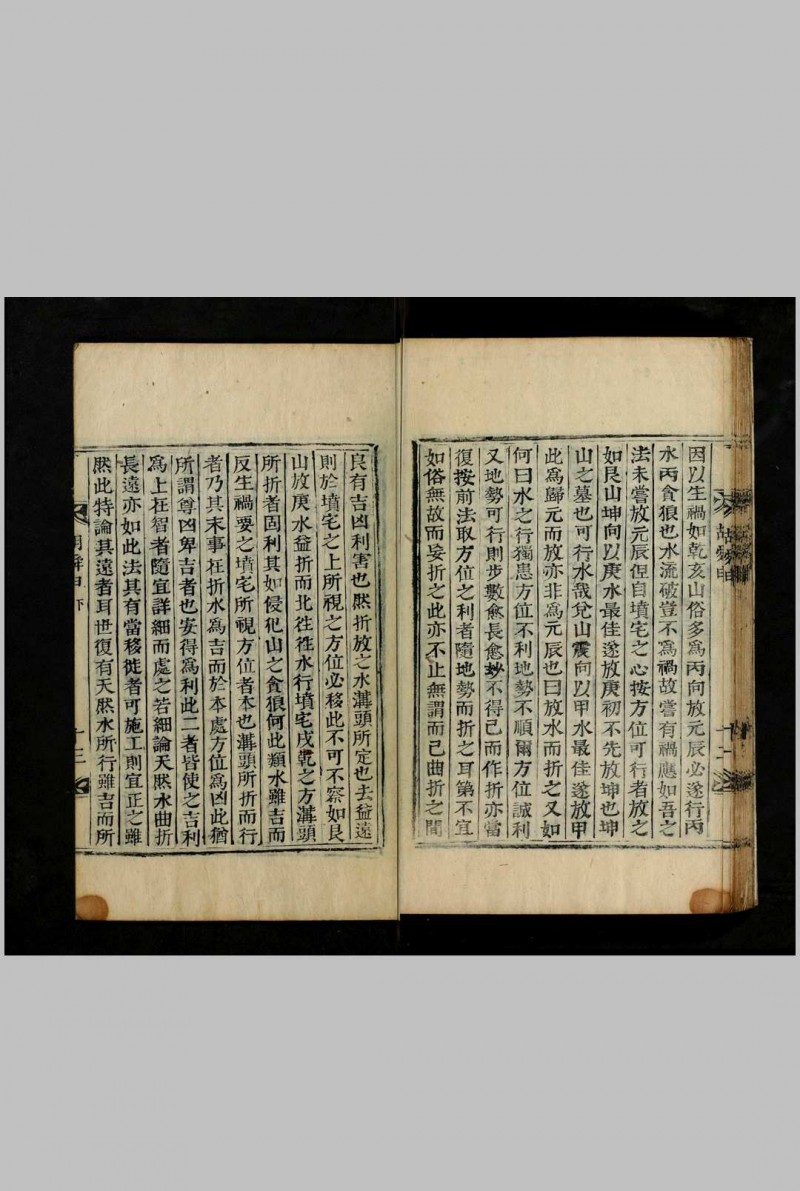 因以生禍如乾亥山俗多為丙向放元辰必遂行丙
水丙貪狼也水流破豈不為禍故嘗有禍應如吾之
法未嘗放元辰但自墳宅之心按方位可行者放之
如艮山坤向以庚水最佳遂放庚初不先放坤也坤
山之墓也可行水哉兊山震向以甲水最佳遂放甲
此為歸元而放亦非為元辰也曰放水而折之又如
何曰水之行獨患方位不利地勢不順爾方位誠利
又地勢可行則步數愈長愈妙不得已而作折亦當
復按前法取方位之利者隨地勢而折之耳第不宜
如俗無故而妄折之此亦不止無謂而已曲折之間
良有吉凶利害也然折放之水溝頭所定也去益遠
則於墳宅之上所視之方位必移此不可不察如艮
山放庚水益折而北徃徃水行墳宅戌乾之方溝頭
所折者固利其如侵犯山之貪狼何此類水雖吉而
反生禍要之墳宅所視方位者本也溝頭所折而行
者乃其末事在折水為吉而於本處方位為凶此猶
所謂尊凶卑吉者也安得為利此二者皆使之吉利
為上在智者隨宜詳細而處之若細論天然水曲折
長遠亦如此法其有當移徙者可施工則宜正之雖
然此特論其遠者耳世復有天然水所行雖吉而所
十二
十三